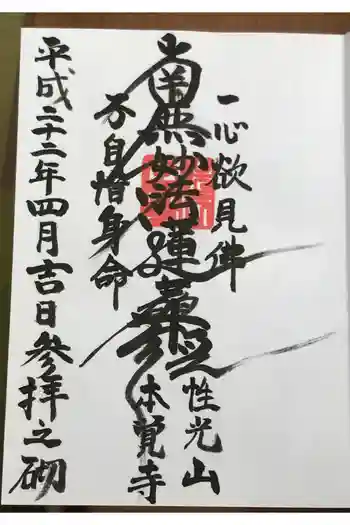 一心欲見佛
南無妙法蓮華経
不自惜身命
性光山
本覚寺
平成二十二年四月吉日参拝之砌